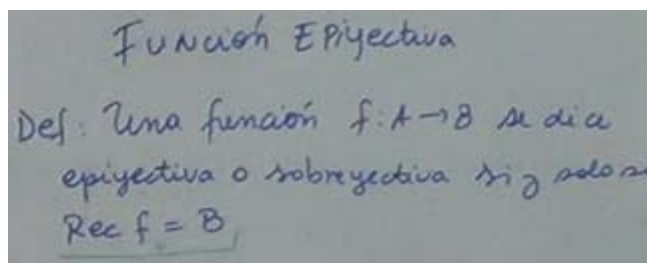 Función Epiyectiva
Def: Una función f: A → B se dice
epiyectiva o sobreyectiva si y solo s
Rec f = B